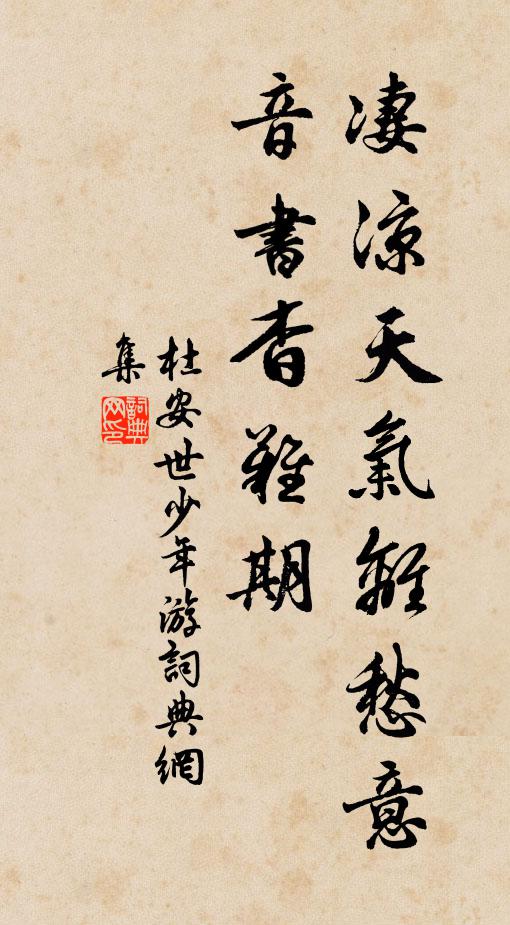 凄涼天氣離愁意
音書杳難期
杜安世少年游詞典網
集
詞典網印